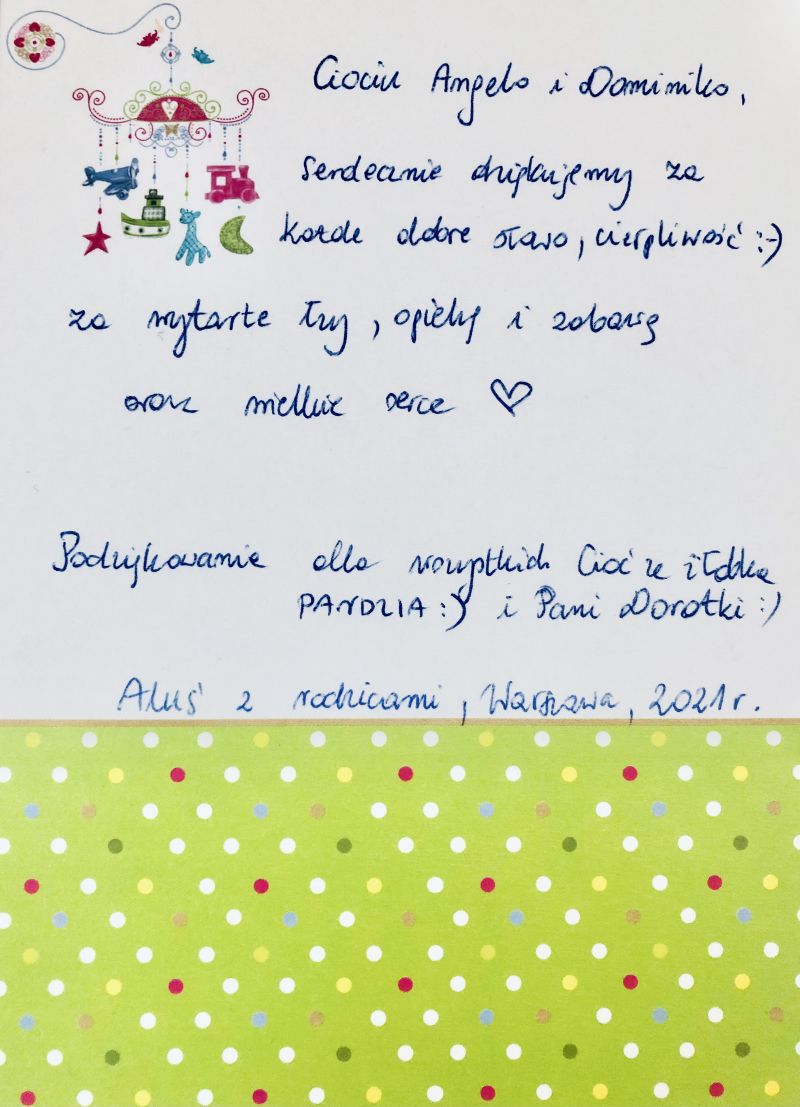 Ciociu Angelo i Dominiko,
serdecznie dziękujemy za
każde dobre słowo, cierpliwość :-)
za wytarte łzy, opiekę i zabawę
oraz wielkie serce ♡
Podziękowania dla wszystkich Cioć ze żłobka
PANDZIA :) i Pani Dorotki :)
Aluś z rodzicami, Warszawa, 2021 r.